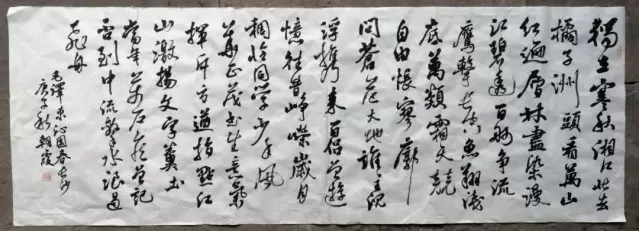 獨立寒秋湘江北去
橘子洲頭看萬山
红遍層林盡染漫
江碧透百舸争流
鹰擊长空魚翔淺
底萬類霜天競
自由悵寥廓
問蒼茫大地誰主沉
浮携来百侣曾遊
憶往昔崢嶸歲月
稠恰同學少年風
華正茂書生意氣
揮斥方遒指點江
山激揚文字糞土
當年萬户侯曾記
否到中流擊水浪遏
飛舟
毛澤东沁園春长沙
庚子秋